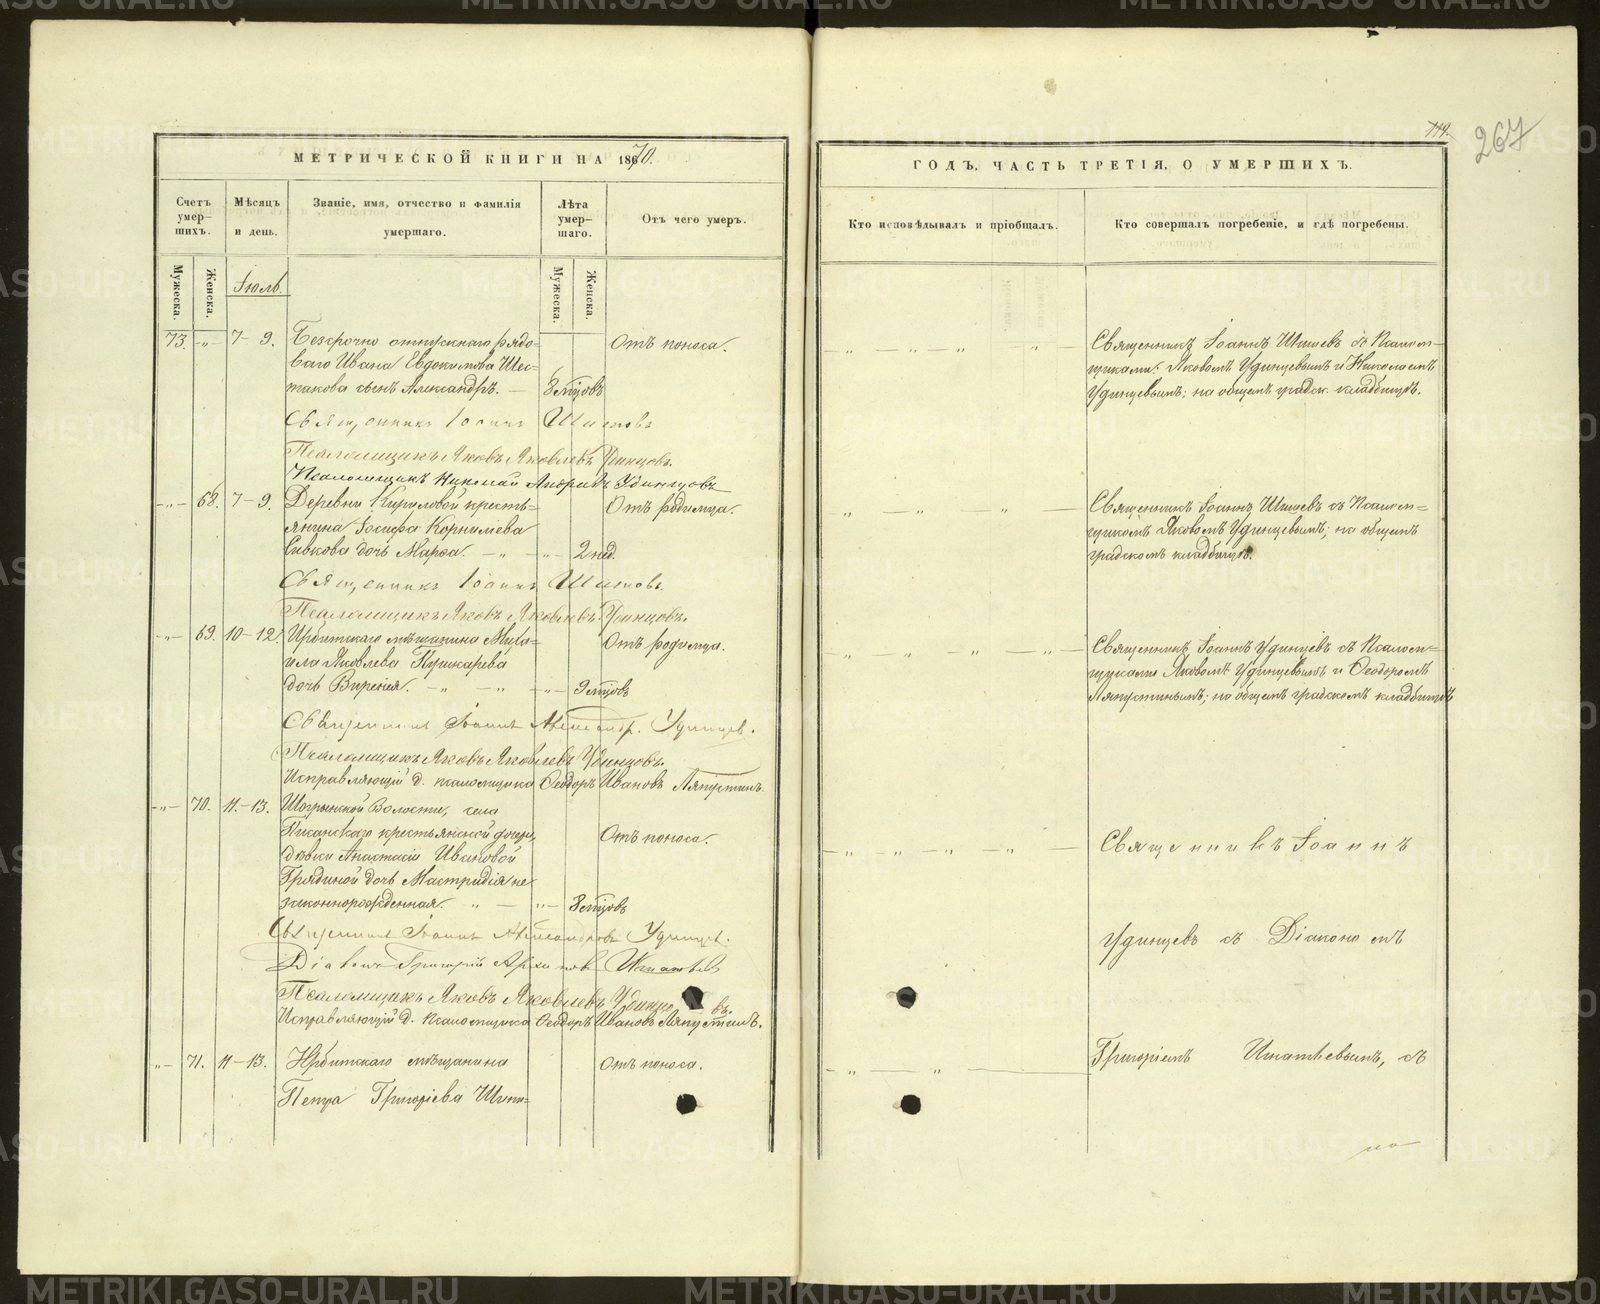 МЕТРИЧЕСКОЙ КНИГИ НА 1870.
Счетъ умер-шихъ.
Мѣсяцъ и день.
Званіе, имя, отчество и фамилія умершаго.
Лѣта умер-шаго.
Отъ чего умеръ.
Мужеска.
Женска.
Іюль.
Мужеска.
Женска.
73. -„- 7-9. Безсрочно отпускнаго рядо- Отъ поноса.
ваго Ивана Евдокимова Шес-
такова сынъ Александръ. — 8 мцовъ
Священникъ Іоаннъ Шишовъ
Псаломщикъ Яковъ Яковлевъ Удинцовъ.
Псаломщикъ Николай Удинцовъ
-„- 68. 7-9. Деревни Кириловой кресть- Отъ родимца.
янина Іосифа Корнилева
Сивкова дочь Марѳа. -„- -„- 2 нед.
Священникъ Іоаннъ Шишовъ.
Псаломщикъ Яковъ Яковлевъ Удинцовъ.
-„- 69. 10-12. Ирбитскаго мѣщанина Миха- Отъ родимца.
ила Яковлева Пушкарева
дочь -„- -„- -„- 9 мцовъ
Священникъ Іоаннъ Александр. Удинцев.
Псаломщикъ Яковъ Яковлевъ Удинцовъ.
Исправляющій д. псаломщика Ѳеодоръ Ивановъ Ляпустинъ.
-„- 70. 11-13. Волости, села
крестьянской дочери, Отъ поноса.
дѣвки Анастасіи Ивановой
дочь не
законнорожденная. „ — „ — 8 мцовъ
Священникъ Іоаннъ Александровъ Удинцев.
Діаконъ Григорій Игнатьевъ
Псаломщикъ Яковъ Яковлевъ Удинцовъ.
Исправляющій д. псаломщика Ѳеодоръ Ивановъ Ляпустинъ.
-„- 71. 11-13. Ирбитскаго мѣщанина Отъ поноса.
Петра Григоріева Шиши-
119.
267
ГОДЪ, ЧАСТЬ ТРЕТІЯ, О УМЕРШИХЪ.
Кто исповѣдывалъ и пріобщалъ.
Кто совершалъ погребеніе, и гдѣ погребены.
Священникъ Іоаннъ Шишевъ съ Псалом-
щиками: Яковомъ Удинцевымъ и Николаемъ
Удинцевымъ; на общемъ градск. кладбищѣ.
Священникъ Іоаннъ Шишевъ съ Псалом=
щикомъ Яковомъ Удинцевымъ; на общемъ
градскомъ кладбищѣ.
Священникъ Іоаннъ Удинцевъ съ Псалом=
щиками Яковомъ Удинцевымъ и Ѳеодоромъ
Ляпустинымъ; на общемъ градскомъ кладбищѣ
Священникъ Іоаннъ
Удинцевъ съ Діакономъ
Григоріемъ Игнатіевымъ, съ
METRIKI.GASO-URAL.RU